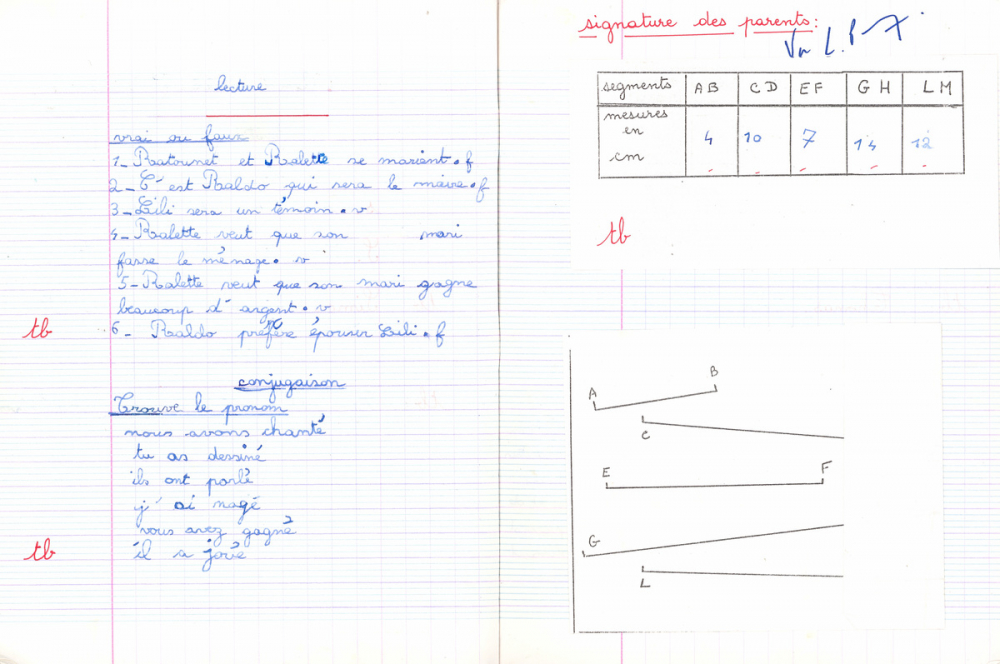 lecture
vrai ou faux
1_ Ratounet et Ralette se marient. f
2_ C'est Raldo qui sera le maire. f
3_ Lili sera un témoin. v
4_ Ralette veut que son mari
fasse le ménage. v
5_ Ralette veut que son mari gagne
beaucoup d'argent. v
tb
6_ Raldo préfère épouser Lili. f
conjugaison
Trouve le pronom
nous avons chanté
tu as dessiné
ils ont parlé
j'ai nagé
vous avez gagné
tb
il a joué
signature des parents:
Vu
segments AB CD EF GH LM
mesures
en
cm
4 10 7 14 12
tb
A B
C
E F
G
L